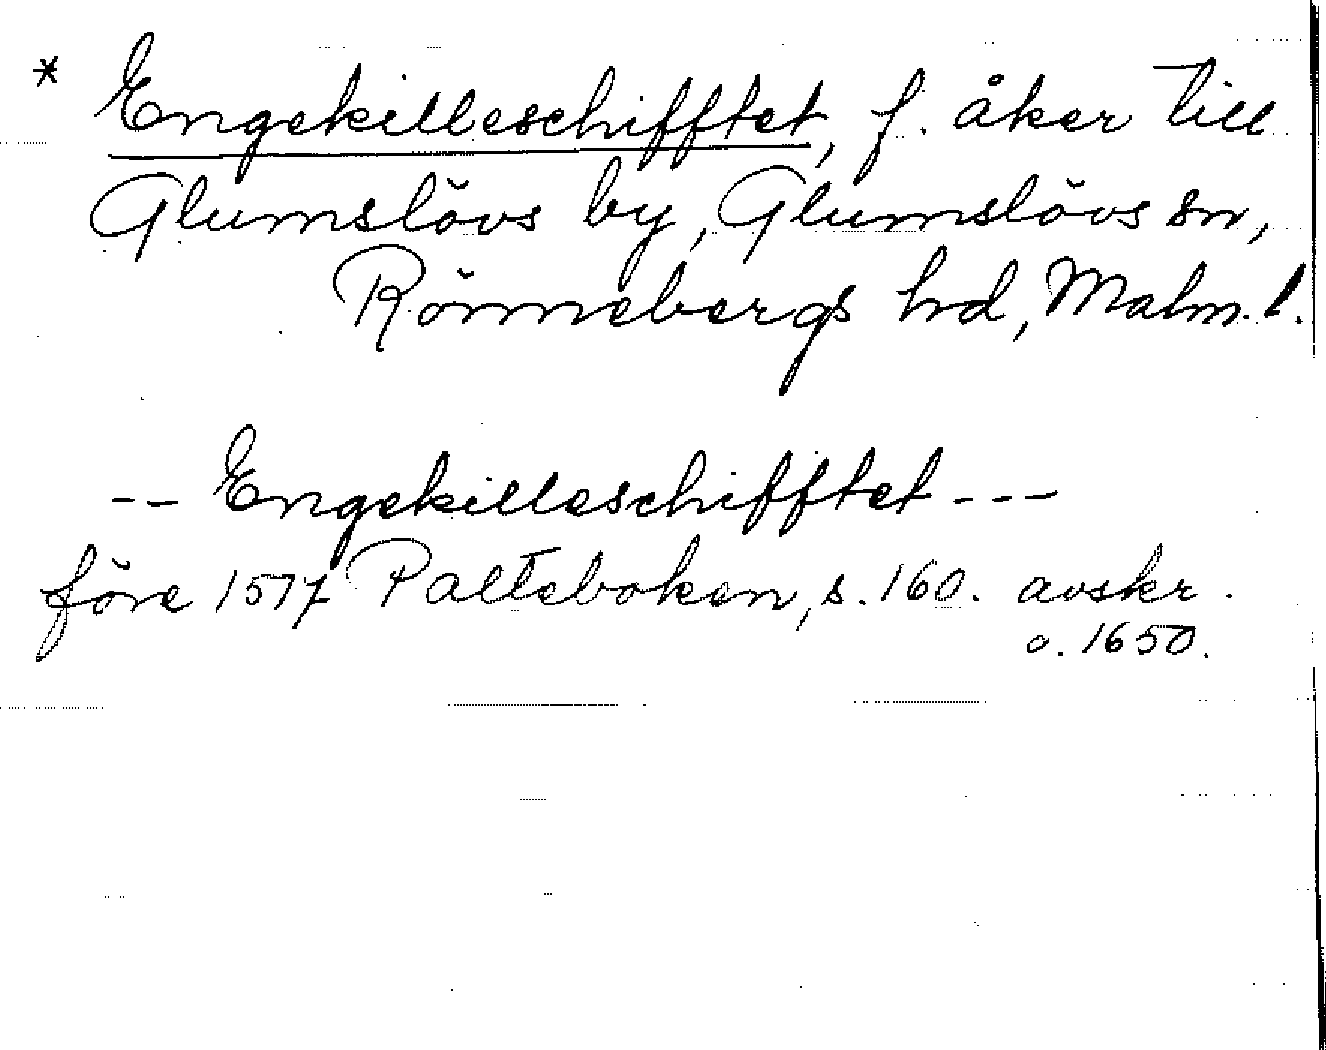 * Engekilleschifftet, f. åker till
Glumslövs by, Glumslövs sn,
Rönnebergs hd, Malm. l.
-- Engekilleschifftet ---
före 1517 Palteboken, s. 160. avskr.
o. 1650.